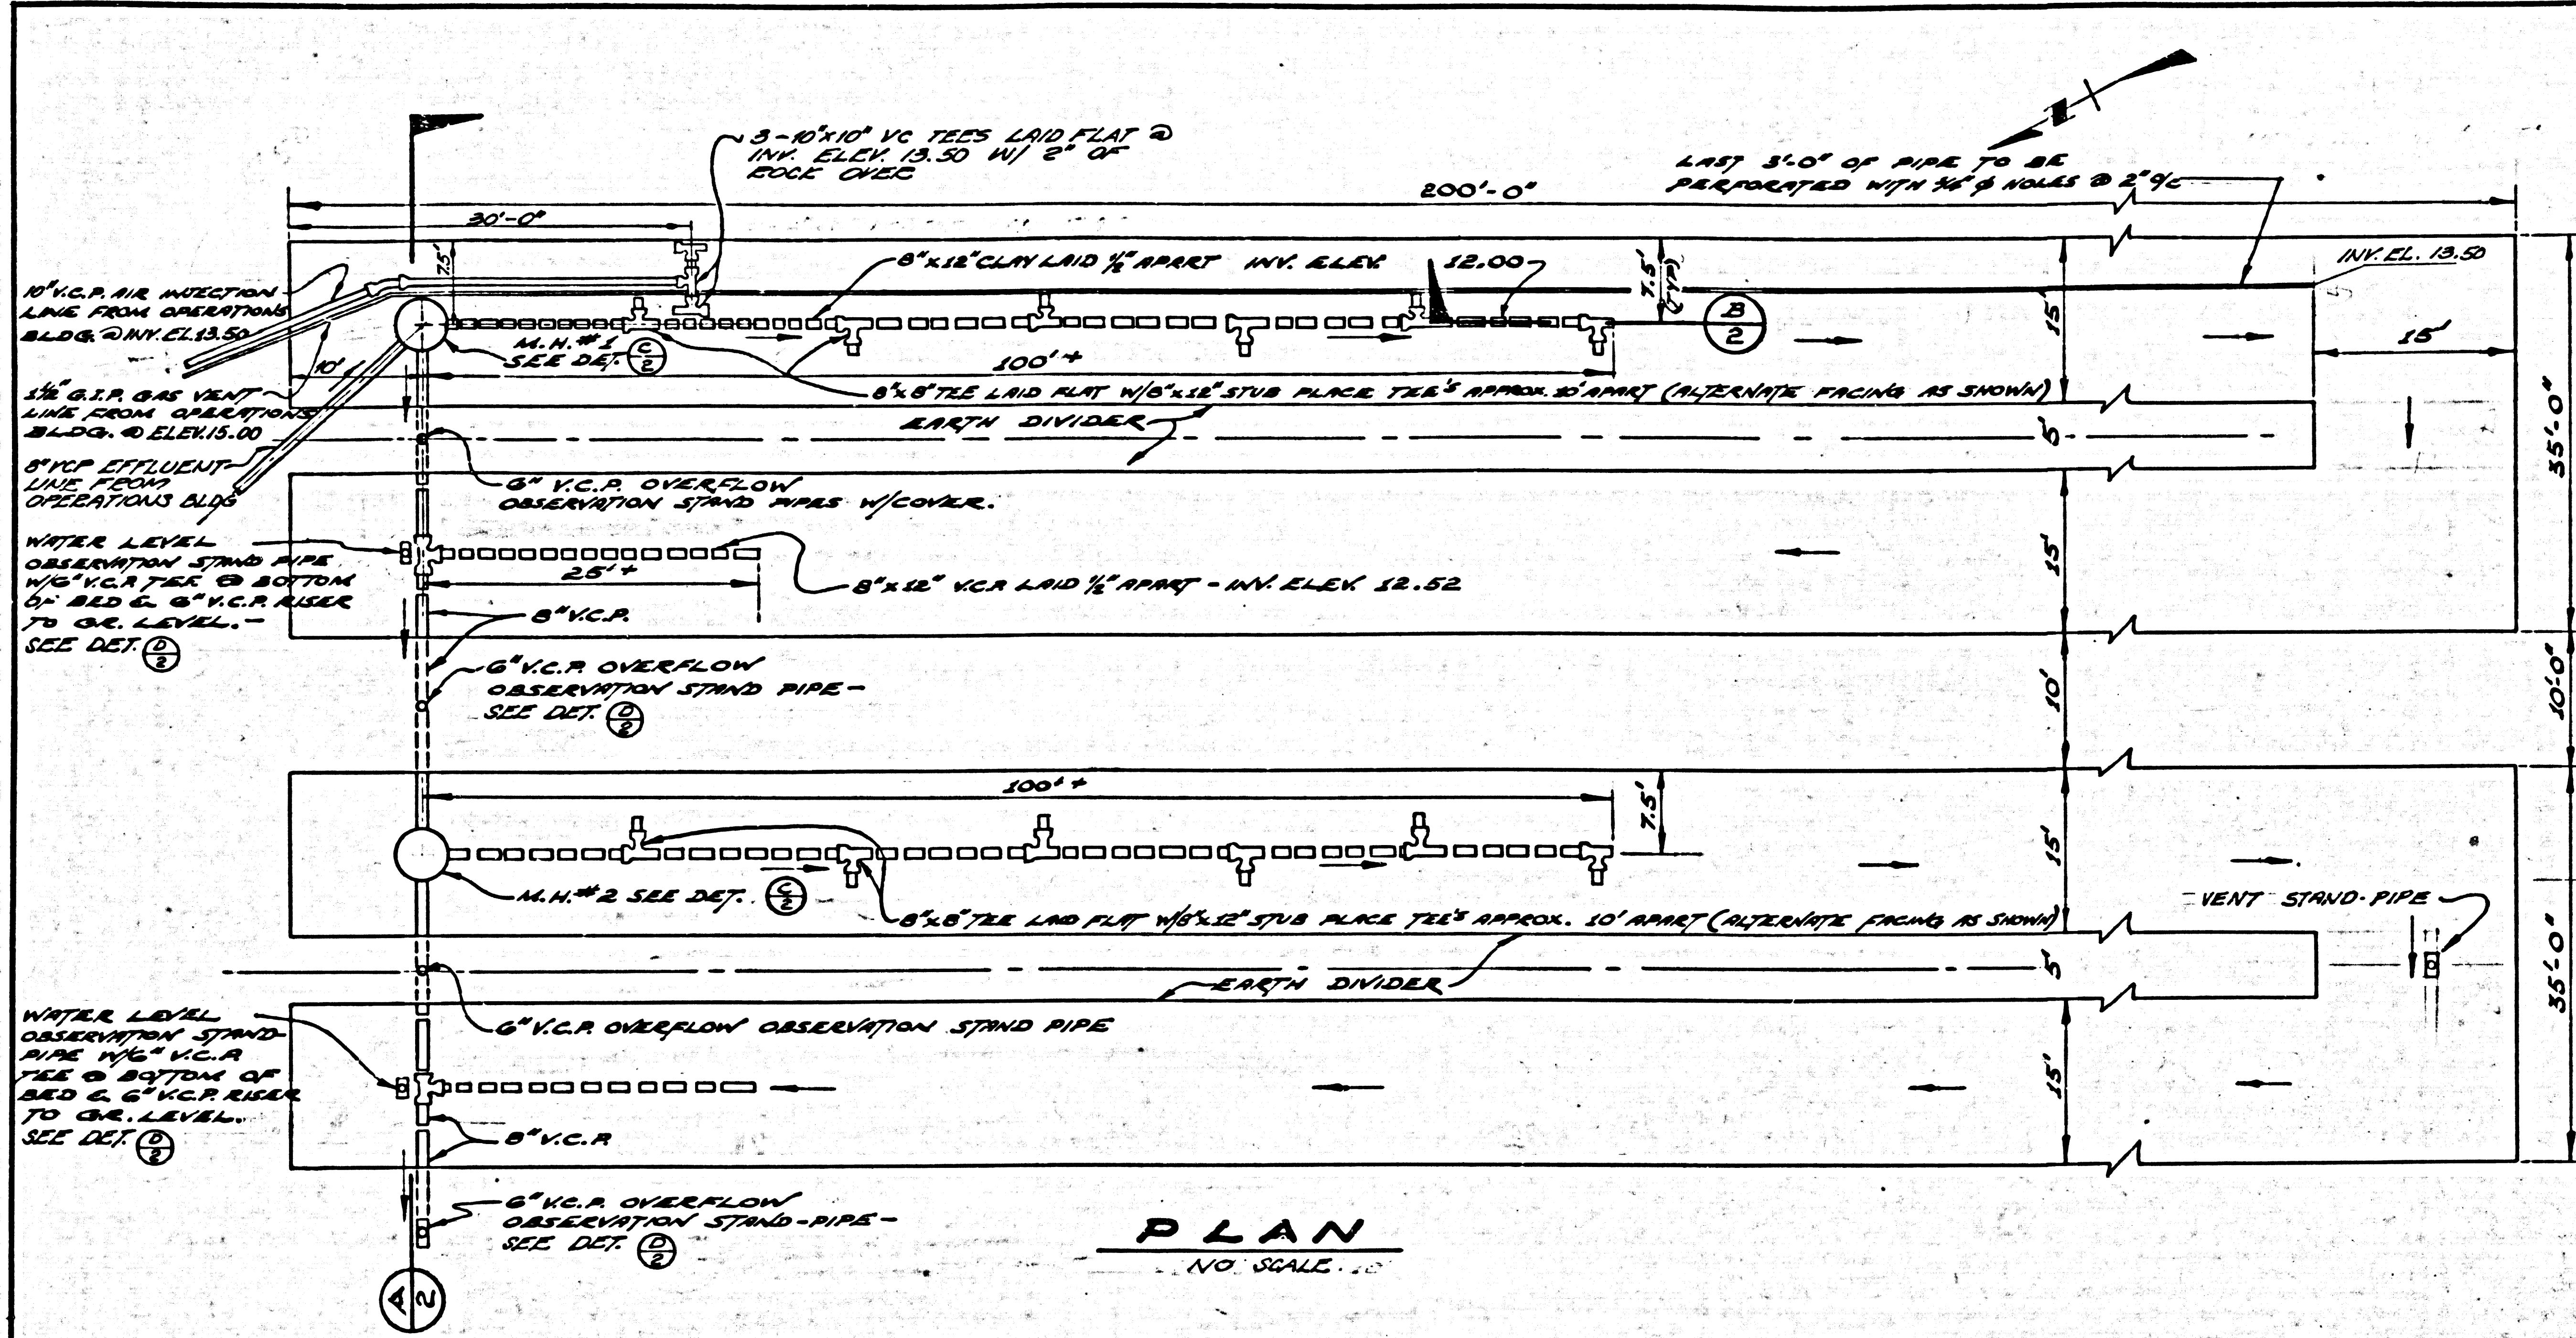 3-10"x10" VC TEES LAID FLAT @
INV. ELEV. 13.50 W/ 2" OF
ROCK OVER
N
LAST 3'-0" OF PIPE TO BE
PERFORATED WITH ø HOLES @ 2" o/c
200'-0"
30'-0"
7.5'
8"x12" CLAY LAID 1/2" APART INV. ELEV. 12.00
7.5'
(TYP)
INV. EL. 13.50
10" V.C.P. AIR INJECTION
LINE FROM OPERATIONS
BLDG. @ INV. EL. 13.50
M.H. #1
SEE DET. C/2
B/2
15'
15'
10'
100' +
35'-0"
1 1/2" G.I.P. GAS VENT
LINE FROM OPERATIONS
BLDG. @ ELEV. 15.00
8"x8" TEE LAID FLAT W/8"x12" STUB PLACE TEE'S APPROX. 10' APART (ALTERNATE FACING AS SHOWN)
EARTH DIVIDER
5'
8" VCP EFFLUENT
LINE FROM
OPERATIONS BLDG
6" V.C.P. OVERFLOW
OBSERVATION STAND PIPES W/COVER.
WATER LEVEL
OBSERVATION STAND PIPE
W/6" V.C.P. TEE @ BOTTOM
OF BED & 6" V.C.P. RISER
TO GR. LEVEL.-
SEE DET. D/2
25' +
15'
8"x12" V.C.P. LAID 1/2" APART - INV. ELEV. 12.52
8" V.C.P.
6" V.C.P. OVERFLOW
OBSERVATION STAND PIPE-
SEE DET. D/2
10'
10'-0"
100' +
7.5'
15'
M.H. #2 SEE DET. C/2
8"x8" TEE LAID FLAT W/8"x12" STUB PLACE TEE'S APPROX. 10' APART (ALTERNATE FACING AS SHOWN)
VENT STAND-PIPE
5'
35'-0"
EARTH DIVIDER
WATER LEVEL
OBSERVATION STAND-
PIPE W/6" V.C.P.
TEE @ BOTTOM OF
BED & 6" V.C.P. RISER
TO GR. LEVEL.
SEE DET. D/2
6" V.C.P. OVERFLOW OBSERVATION STAND PIPE
15'
8" V.C.P.
6" V.C.P. OVERFLOW
OBSERVATION STAND-PIPE-
SEE DET. D/2
PLAN
NO SCALE
A/2